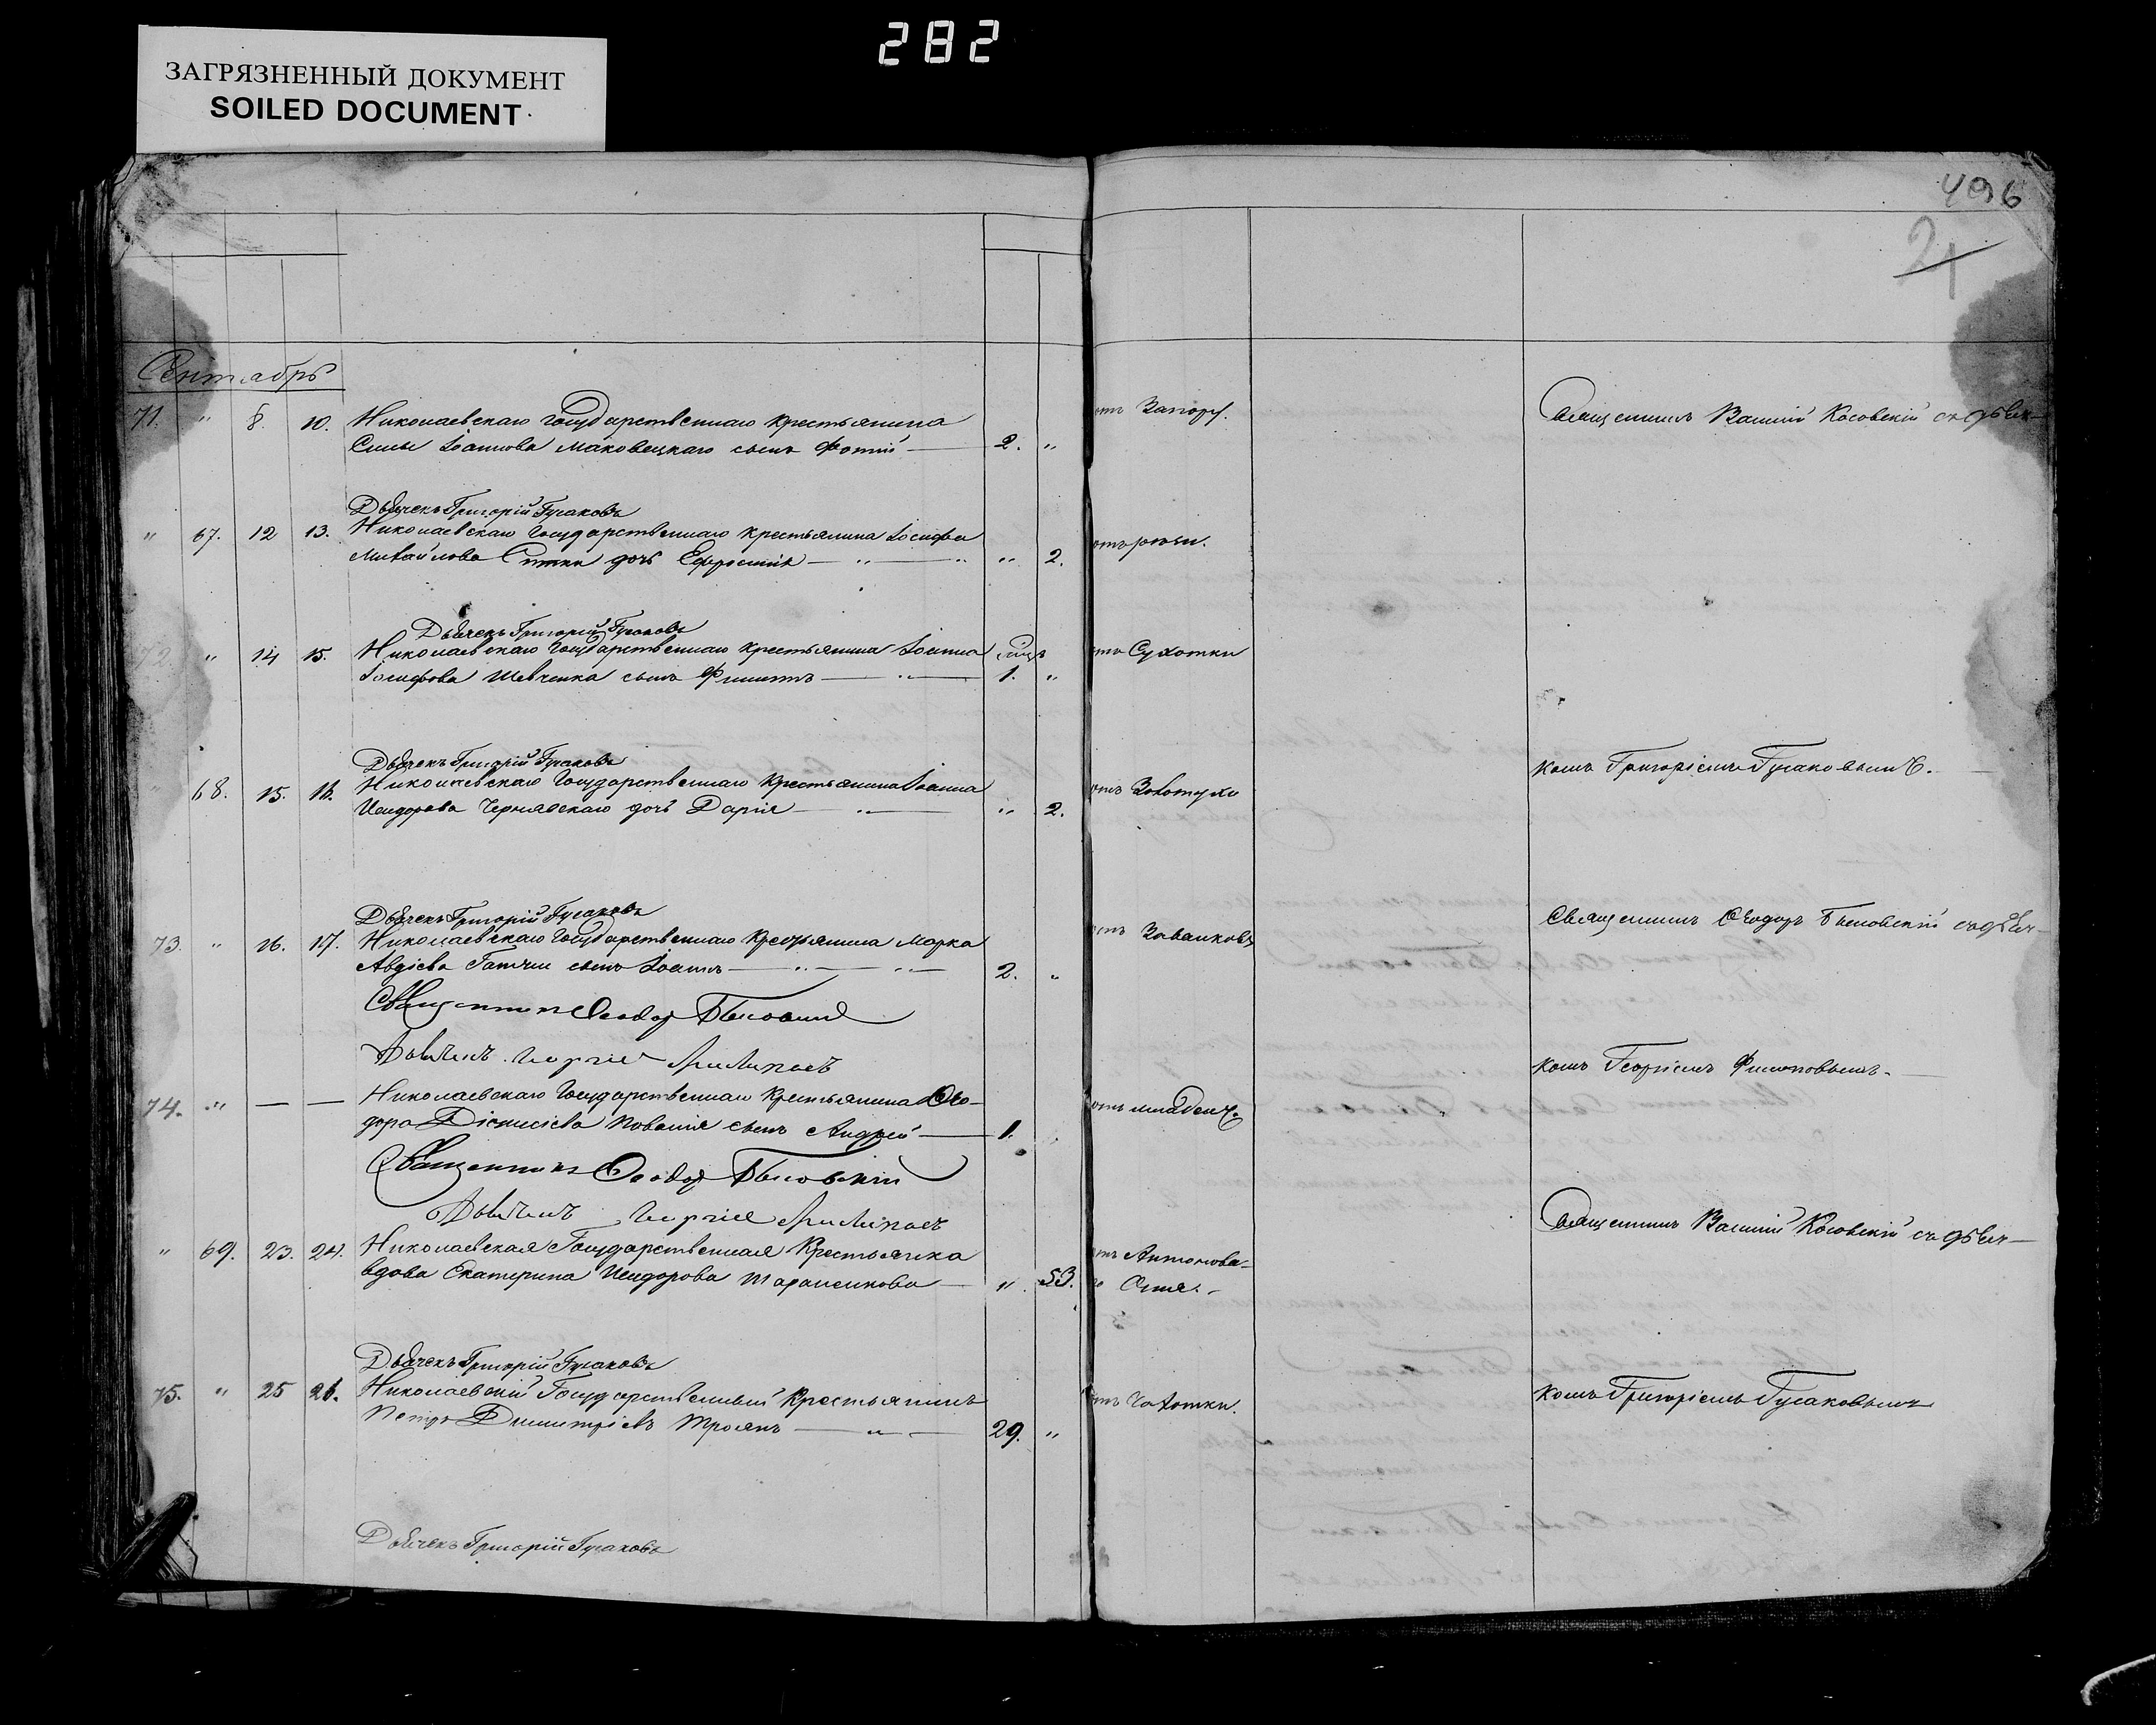 282
ЗАГРЯЗНЕННЫЙ ДОКУМЕНТ
SOILED DOCUMENT
496
21
Сентябрь
71. " 8. 10. Николаевскаго Государственнаго крестьянина
Силы Іоаннова Маковецкаго сынъ Фотій 2. "
отъ Запору.
Священникъ Василій Косовскій съ дьяч-
Дьячекъ Григорій Гусаковъ
" 67. 12 13. Николаевскаго Государственнаго крестьянина Іосифа
Михайлова дочь Ефросинія " 2.
отъ рвоты.
Дьячекъ Григорій Гусаковъ
72. " 14 15. Николаевскаго Государственнаго крестьянина Іоанна
Іосифова Шевченка сынъ Филиппъ 1. "
отъ Сухотки
Дьячекъ Григорій Гусаковъ
" 68. 15. 16. Николаевскаго Государственнаго Крестьянина Іоанна
Исидорова Чернявскаго дочь Дарія " 2.
отъ Золотухи
комъ Григоріемъ Гусаковымъ.
Дьячекъ Григорій Гусаковъ
73. " 16. 17. Николаевскаго Государственнаго Крестьянина Марка
Авдіева сынъ Іоаннъ 2. "
отъ
Священникъ Ѳеодоръ Быковскій съ дьяч-
Священникъ Ѳеодоръ Быковскій
Дьячекъ Георгій Филиповъ
комъ Георгіемъ Филиповымъ.
74. " — — Николаевскаго Государственнаго Крестьянина Ѳео-
дора Діонисіева сынъ Андрей 1.
отъ младенч.
Священникъ Ѳеодоръ Быковскій
Дьячекъ Георгій Филиповъ
Священникъ Василій Косовскій съ дьяч-
" 69. 23. 24. Николаевская Государственная Крестьянка
вдова Екатерина Исидорова Тарасенкова " 53.
отъ Антонова-
го Огня.
Дьячекъ Григорій Гусаковъ
75. " 25 26. Николаевскій Государственный Крестьянинъ
Петръ Димитріевъ Троянъ 29. "
отъ Чахотки.
комъ Григоріемъ Гусаковымъ
Дьячекъ Григорій Гусаковъ